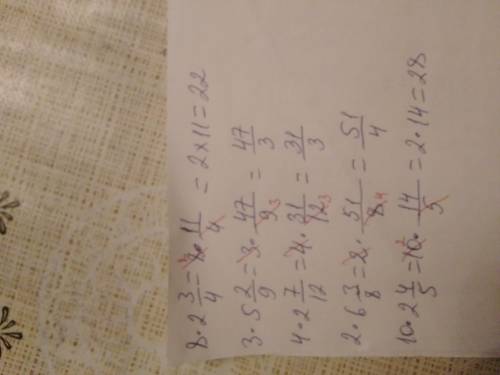 8·2 3/4 = 8· 11/4 = 2×11 = 22
3·5 2/9 = 3· 47/9 3 = 47/3
4·2 7/12 = 4· 31/12 3 = 31/3
2·6 3/8 = 2· 51/8 4 = 51/4
10·2 4/5 = 10 2· 14/5 = 2·14 = 28